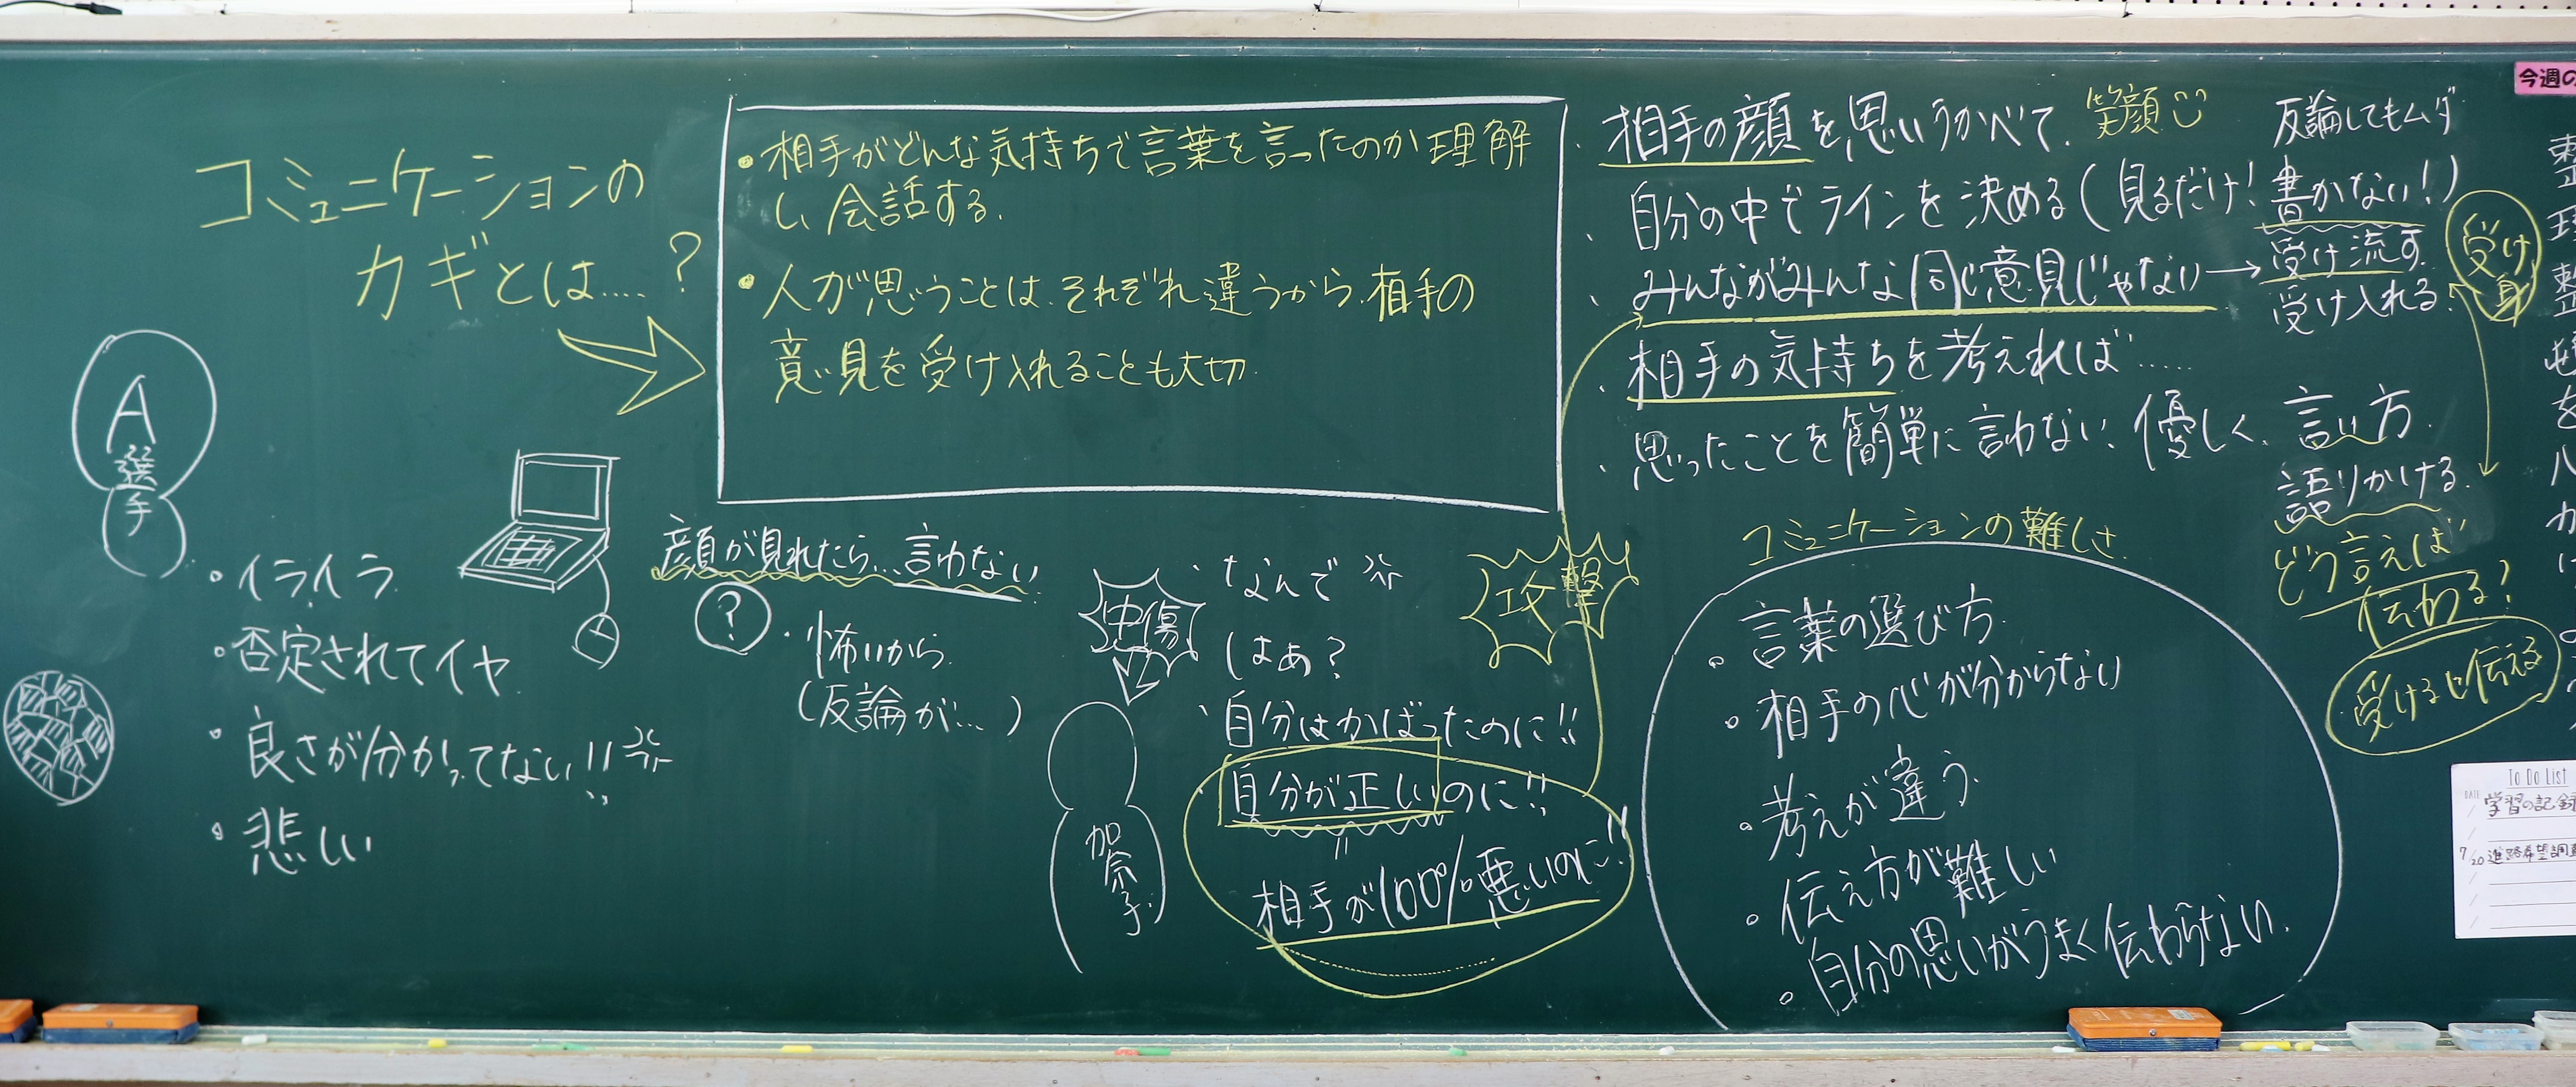 コミュニケーションの
カギとは....?
・相手がどんな気持ちで言葉を言ったのか理解
し、会話する。
・人が思うことは、それぞれ違うから、相手の
意見を受け入れることも大切
A
選
手
・イライラ
・否定されてイヤ
・良さが分かってない!!
・悲しい
顔が見れたら...言わない
?
・怖いから
(反論が...)
中傷
加奈子
・なんで
はぁ?
・自分はかばったのに!!
自分が正しいのに!!
=
相手が100%悪いのに!!
攻撃
・相手の顔を思いうかべて、笑顔
・自分の中でラインを決める(見るだけ!書かない!)
・みんながみんな同じ意見じゃない→受け流す
受け入れる
・相手の気持ちを考えれば.....
・思ったことを簡単に言わない、優しく、言い方
語りかける。
反論してもムダ
受け身
どう言えば
伝わる?
受けると伝える
コミュニケーションの難しさ
・言葉の選び方
・相手の心が分からない
・考えが違う
・伝え方が難しい
・自分の思いがうまく伝わらない。
今週の
To Do List
DATE
学習の記録
7/20 進路希望調査